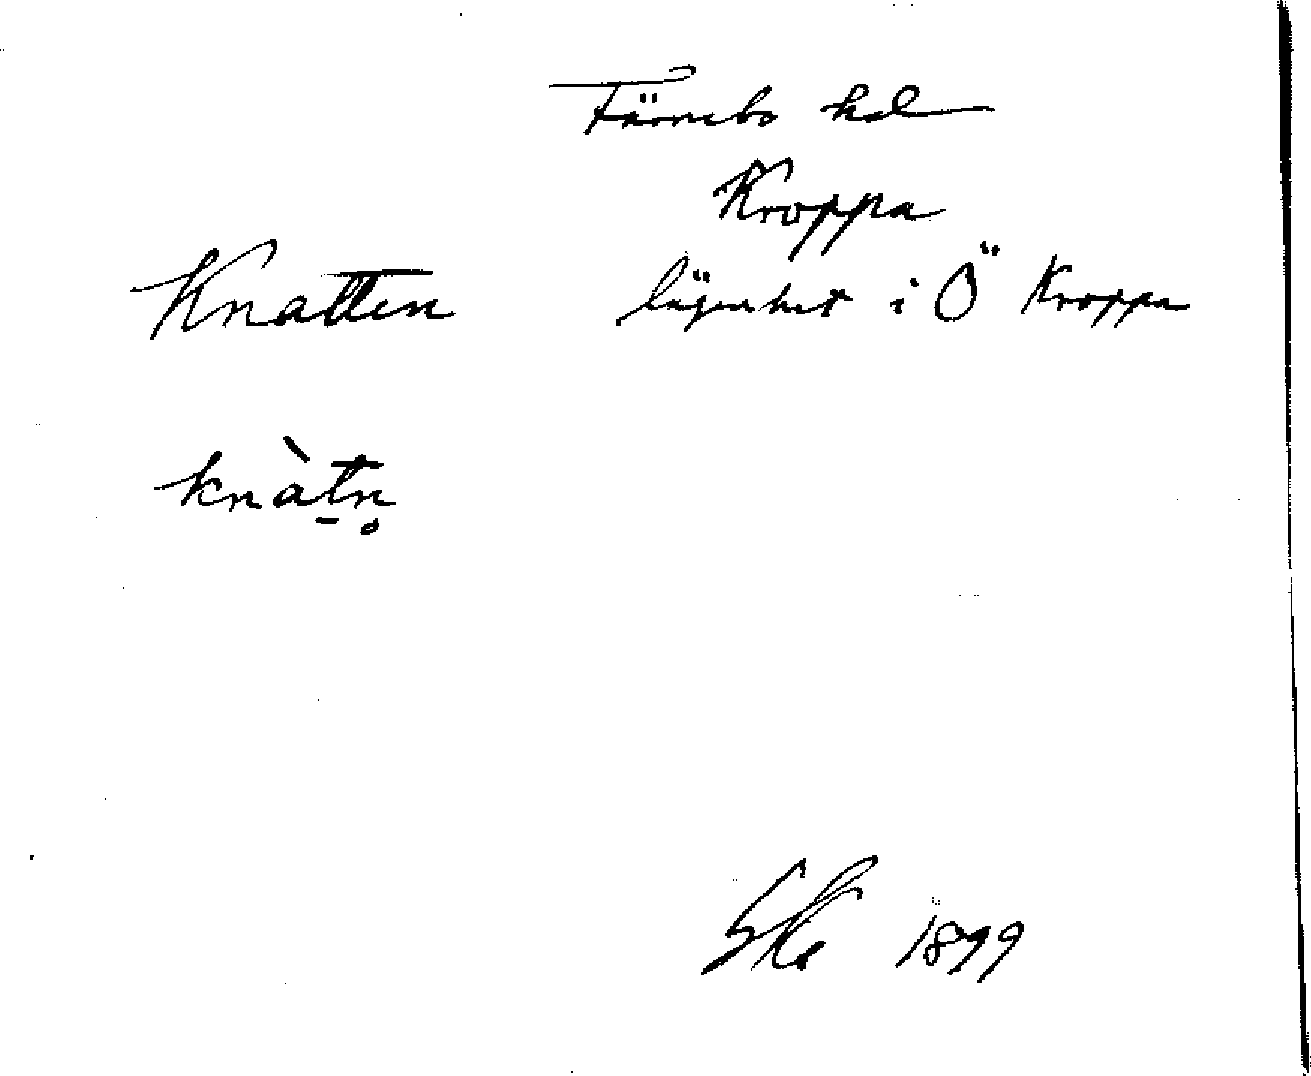 Färnebo hd
Kroppa
Knatten lägenhet i Ö Kroppa
knàt̠n̥
1899